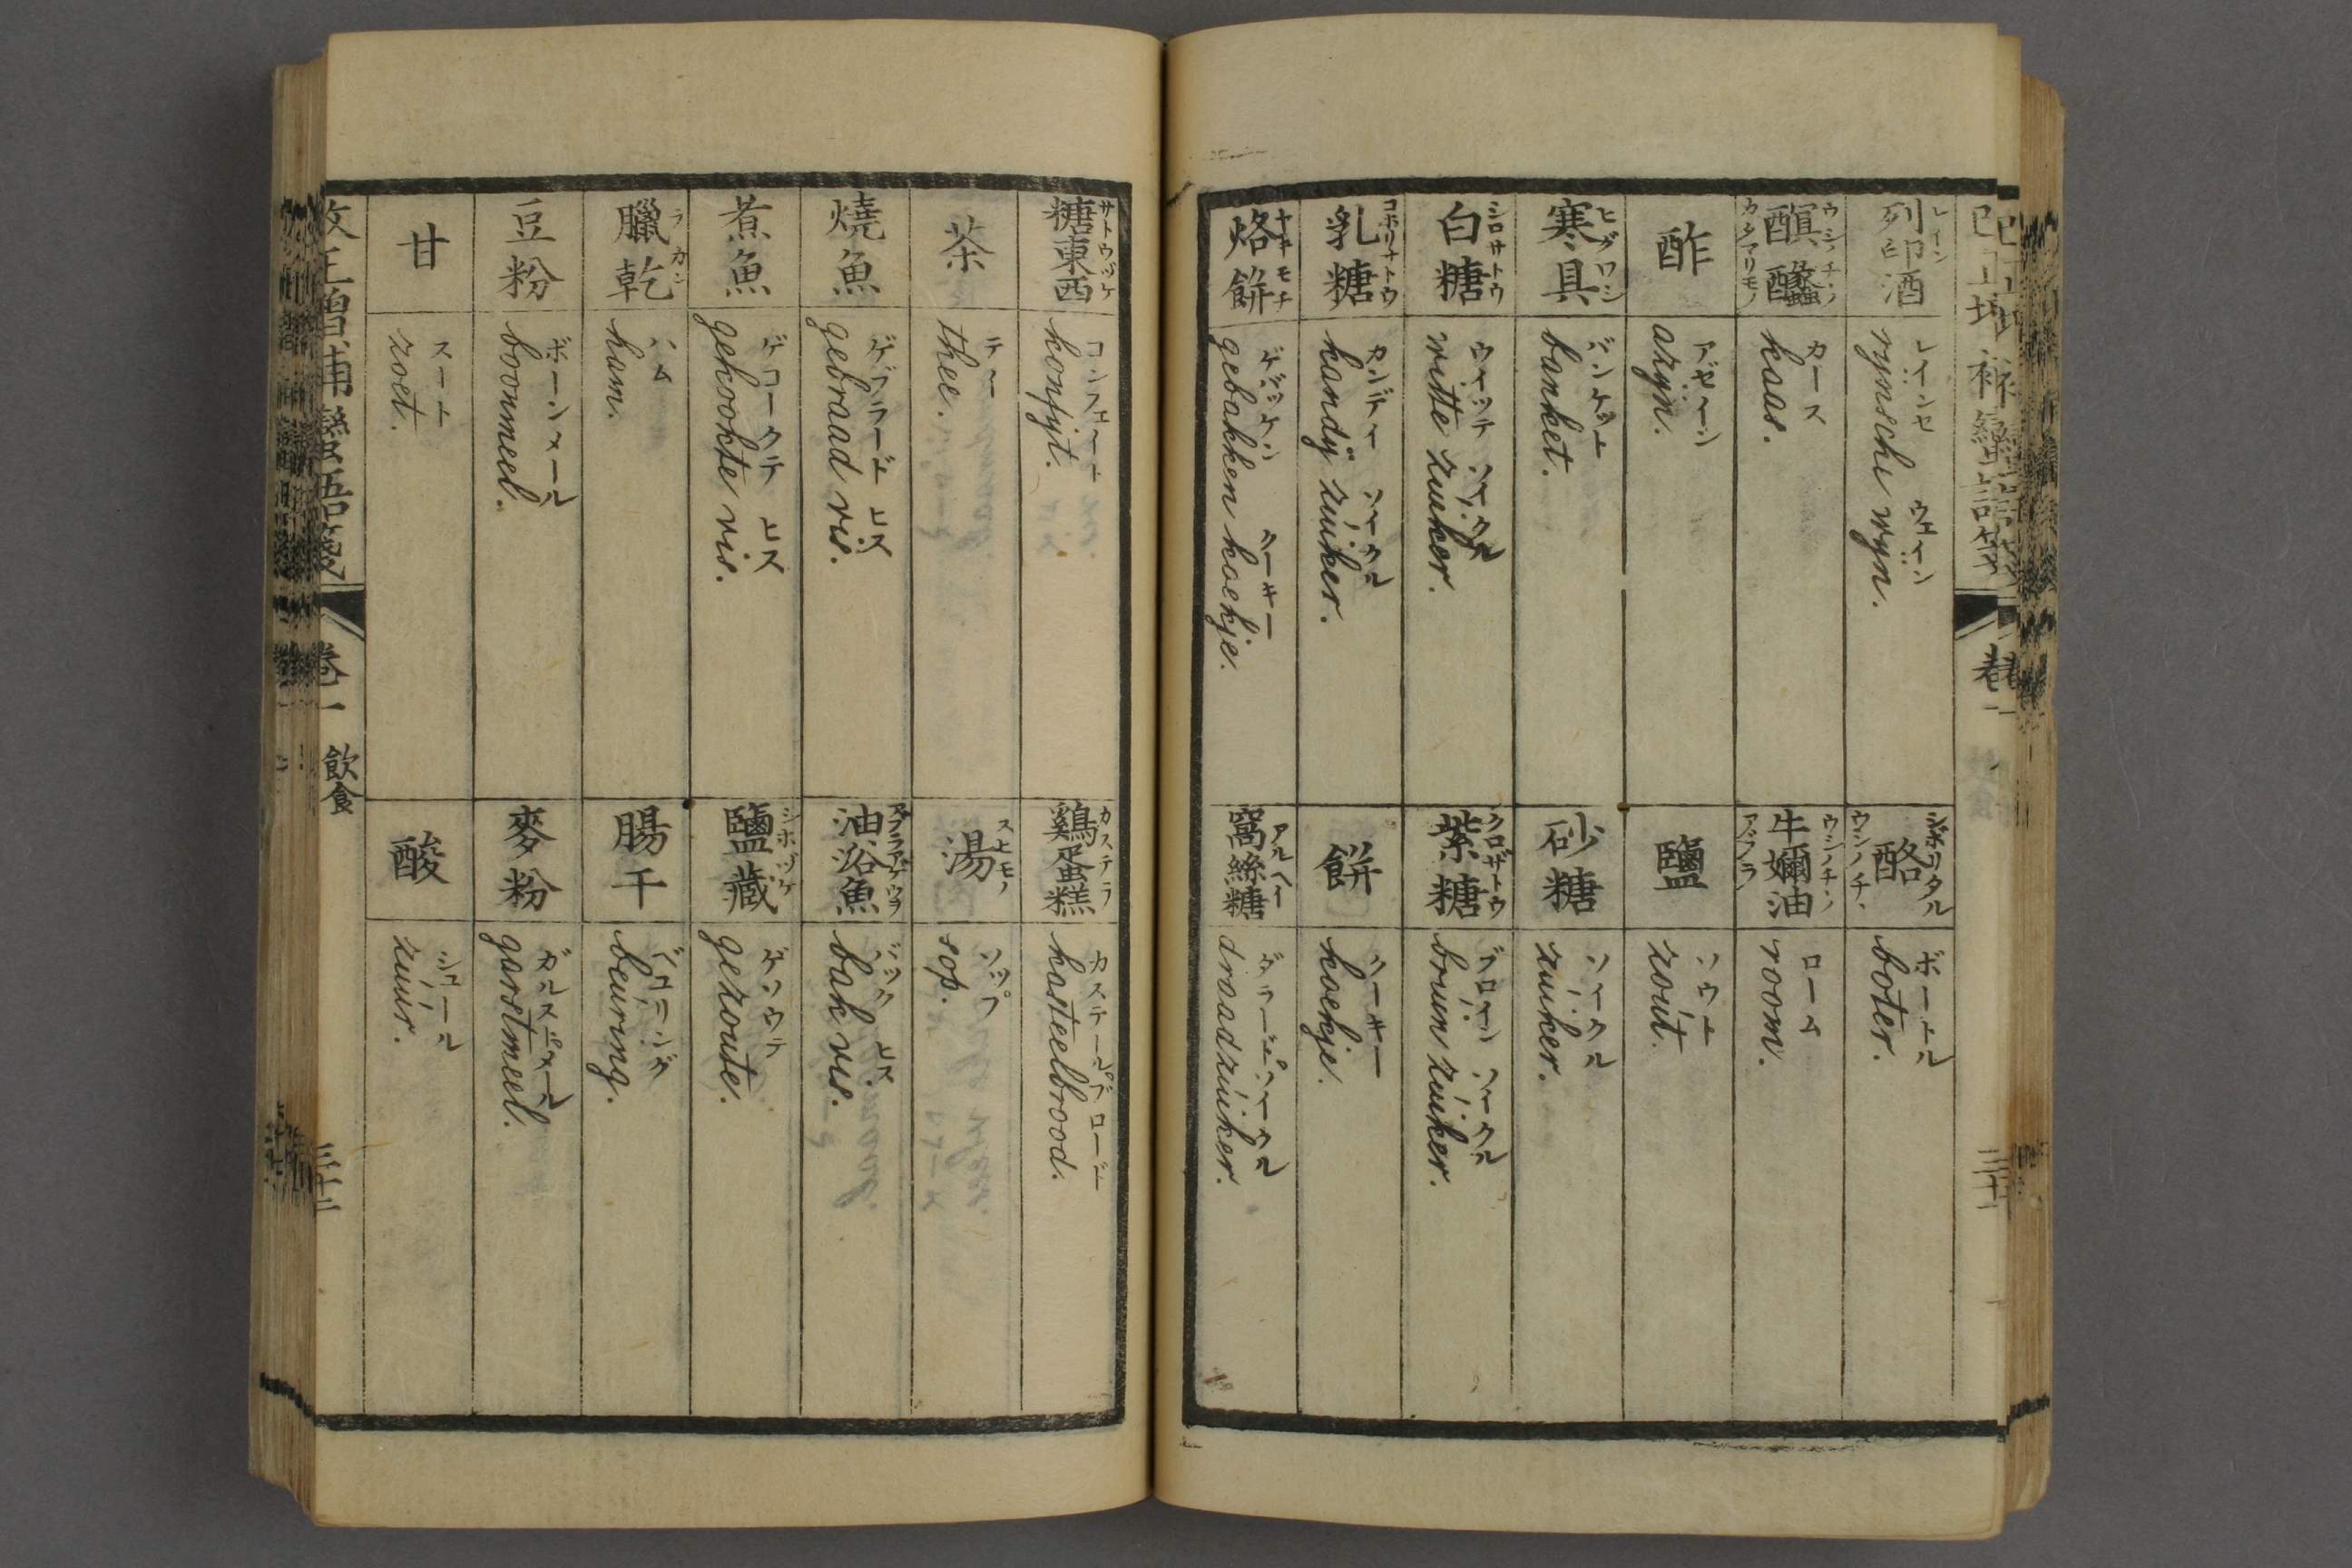 列印酒
レイン
レインセ ウェイン
rijnsche wijn.
酪
シボリタル
ウシノチヽ
ボートル
boter.
醌醽
ウシノチヽノ
カタマリモノ
カース
kaas.
牛嬭油
ウシノチヽノ
アブラ
ローム
room.
酢
アゼイン
azijn.
鹽
ソウト
zout.
寒具
ヒグワシ
バンケット
banket.
砂糖
ソイクル
zuiker.
白糖
シロサトウ
ウィッテ ソイクル
witte zuiker.
紫糖
クロザトウ
ブロイン ソイクル
bruin zuiker.
乳糖
コホリサトウ
カンデイ ソイクル
kandij zuiker.
餅
クーキー
koekje.
烙餅
ヤキモチ
ゲバッケン クーキー
gebakken koekje.
窩絲糖
アルヘイ
ダラードソイクル
draadzuiker.
糖東西
サトウヅケ
コンフェイト
konfijt.
鷄蛋糕
カステラ
カステールブロード
kasteelbrood.
茶
テー
thee.
湯
スヒモノ
ソップ
sop.
燒魚
ゲブラード ヒス
gebraad vis.
油浴魚
アブラアゲウヲ
バック ヒス
bak vis.
煮魚
ゲコークテ ヒス
gekookte vis.
鹽藏
シホヅケ
ゲソウテ
gezoute.
臘乾
ラカン
ハム
ham.
腸干
ベユリング
beuring.
豆粉
ボーンメール
boonmeel.
麥粉
ガルストメール
garstmeel.
甘
スート
zoet.
酸
シュール
zuur.
改正增補蠻語箋
卷一 飲食
三十二